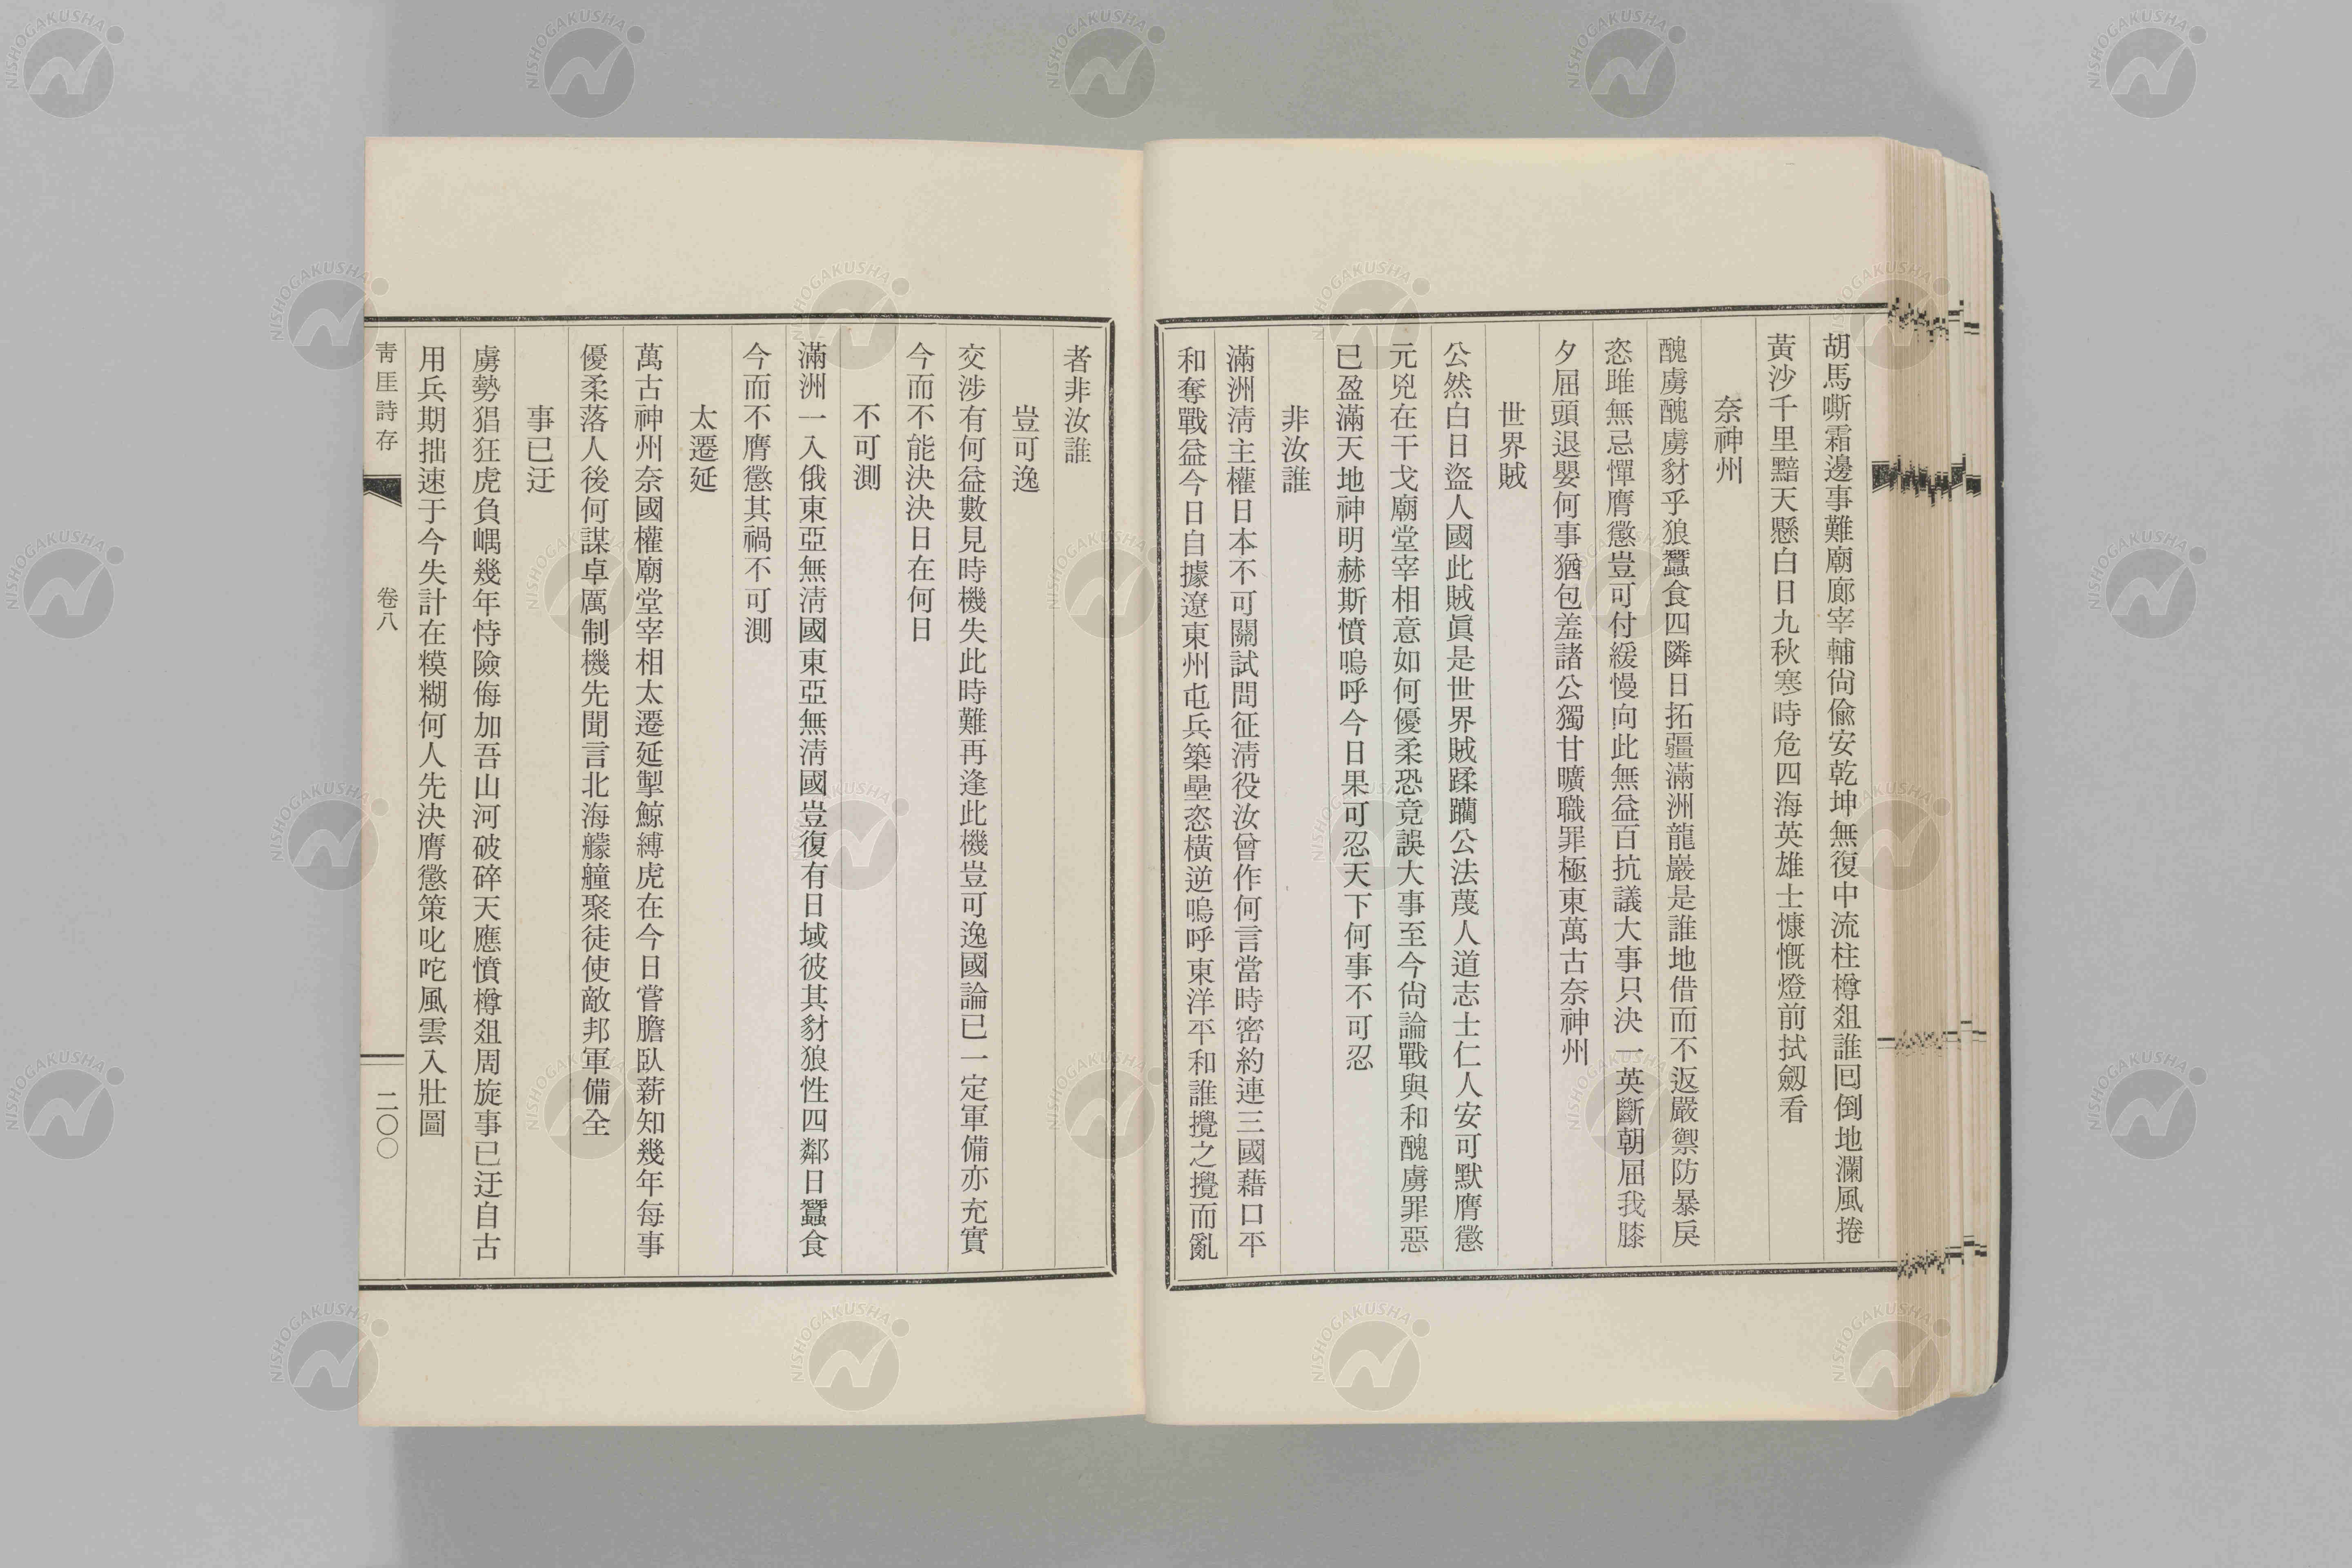 胡馬嘶霜邊事難廟廊宰輔尙偸安乾坤無復中流柱樽俎誰囘倒地瀾風捲
黃沙千里黯天懸白日九秋寒時危四海英雄士慷慨燈前拭劔看
奈神州
醜虜醜虜豺乎狼蠶食四隣日拓疆滿洲龍巖是誰地借而不返嚴禦防暴戾
恣雎無忌憚膺懲豈可付緩慢向此無益百抗議大事只決一英斷朝屈我膝
夕屈頭退嬰何事猶包羞諸公獨甘曠職罪極東萬古奈神州
世界賊
公然白日盜人國此賊眞是世界賊蹂躪公法蔑人道志士仁人安可默膺懲
元兇在干戈廟堂宰相意如何優柔恐竟誤大事至今尙論戰與和醜虜罪惡
已盈滿天地神明赫斯憤嗚呼今日果可忍天下何事不可忍
非汝誰
滿洲淸主權日本不可關試問征淸役汝曾作何言當時密約連三國藉口平
和奪戰益今日自據遼東州屯兵築壘恣橫逆嗚呼東洋平和誰攪之攪而亂
者非汝誰
豈可逸
交涉有何益數見時機失此時難再逢此機豈可逸國論已一定軍備亦充實
今而不能決決日在何日
不可測
滿洲一入俄東亞無淸國東亞無淸國豈復有日域彼其豺狼性四鄰日蠶食
今而不膺懲其禍不可測
太遷延
萬古神州奈國權廟堂宰相太遷延掣鯨縛虎在今日嘗膽臥薪知幾年每事
優柔落人後何謀卓厲制機先聞言北海艨艟聚徒使敵邦軍備全
事已迂
虜勢猖狂虎負嵎幾年恃險侮加吾山河破碎天應憤樽俎周旋事已迂自古
用兵期拙速于今失計在糢糊何人先決膺懲策叱咤風雲入壯圖
靑厓詩存
卷八
二〇〇
NISHOGAKUSHA